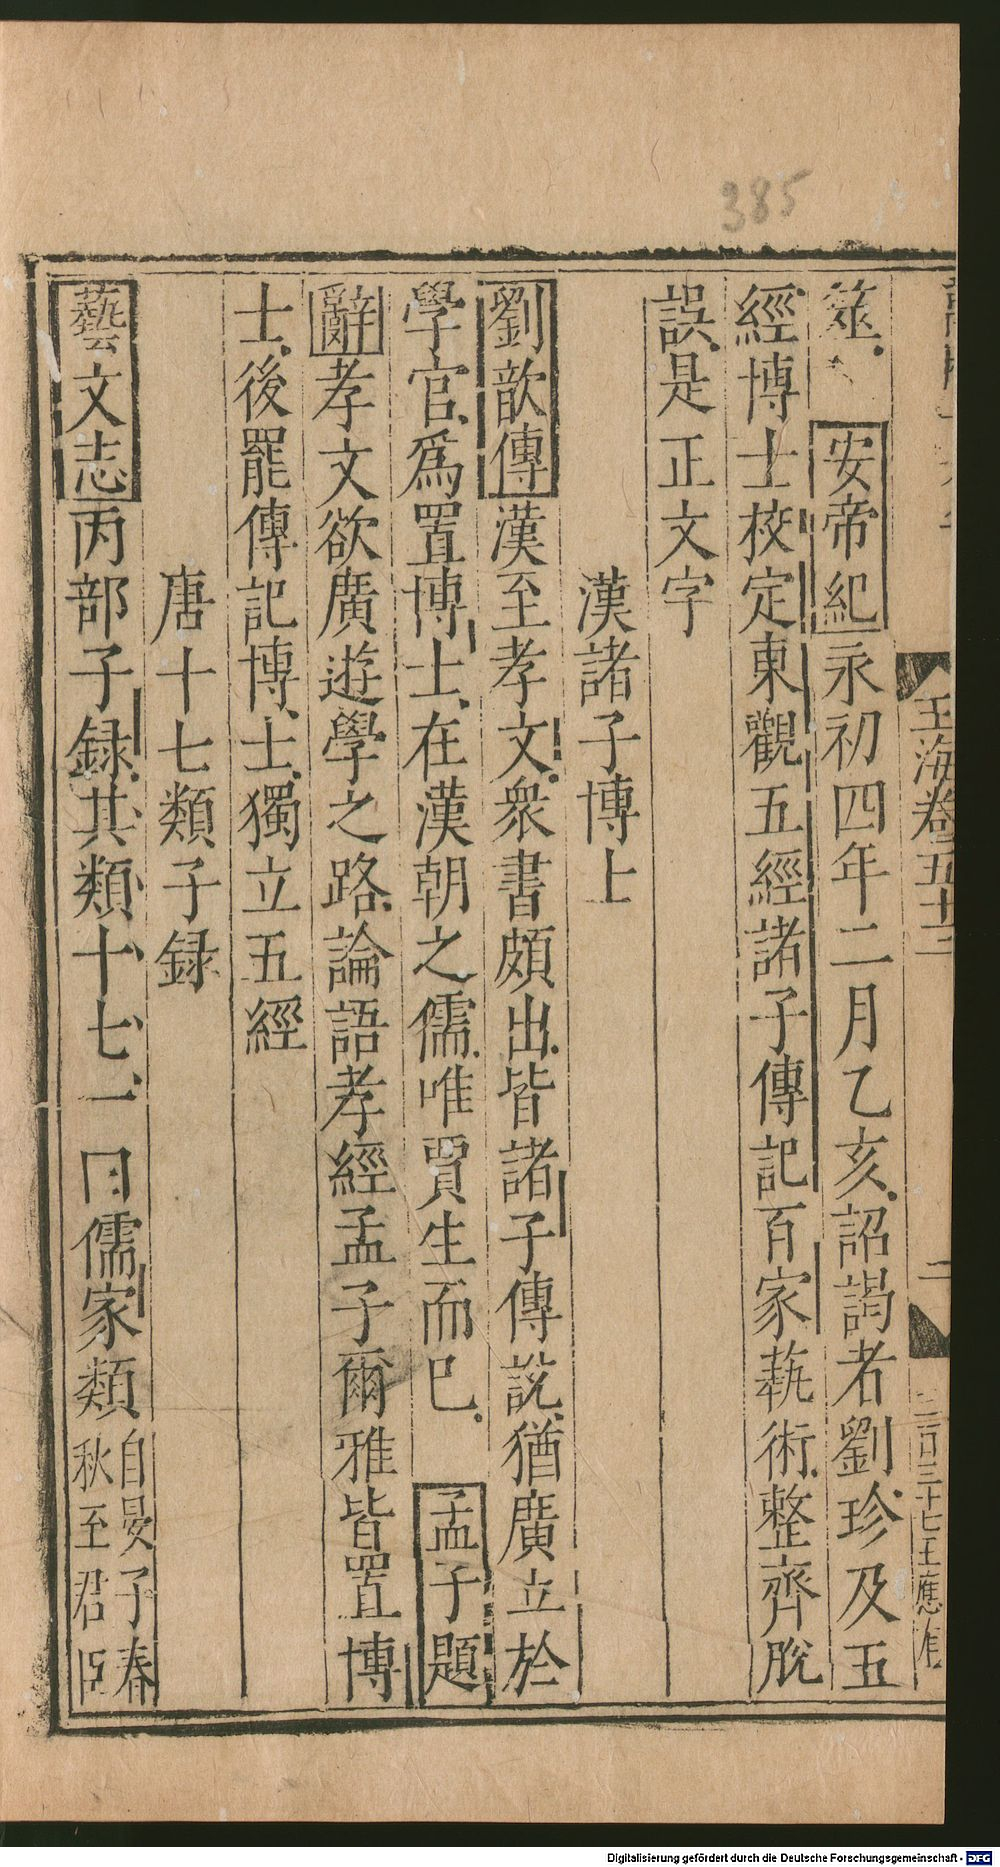 385
玉海卷五十三
二
二百三十七王應
筵 安帝紀永初四年二月乙亥詔謁者劉珍及五
經博士校定東觀五經諸子傳記百家蓺術整齊脫
誤是正文字
漢諸子博士
劉歆傳漢至孝文衆書頗出皆諸子傳說猶廣立於
學官爲置博士在漢朝之儒唯賈生而巳 孟子題
辭孝文欲廣遊學之路論語孝經孟子爾雅皆置博
士後罷傳記博士獨立五經
唐十七類子録
藝文志丙部子録其類十七一曰儒家類自晏子春
秋至君臣
Digitalisierung gefördert durch die Deutsche Forschungsgemeinschaft - DFG